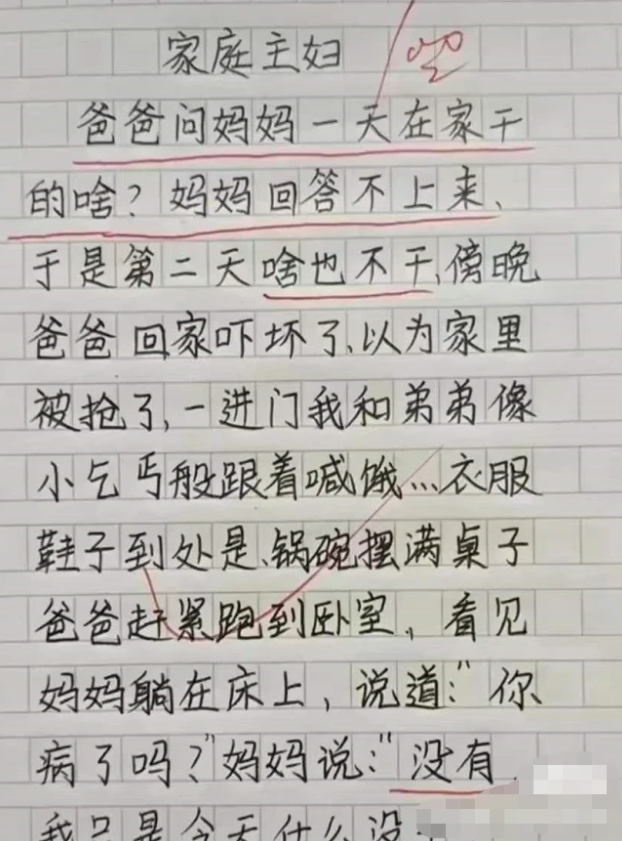 家庭主妇
爸爸问妈妈一天在家干
的啥？妈妈回答不上来、
于是第二天啥也不干、傍晚
爸爸回家吓坏了、以为家里
被抢了,一进门我和弟弟像
小乞丐般跟着喊饿…衣服
鞋子到处是、锅碗摆满桌子
爸爸赶紧跑到卧室，看见
妈妈躺在床上，说道:"你
病了吗？"妈妈说:"没有、
我只是今天什么没